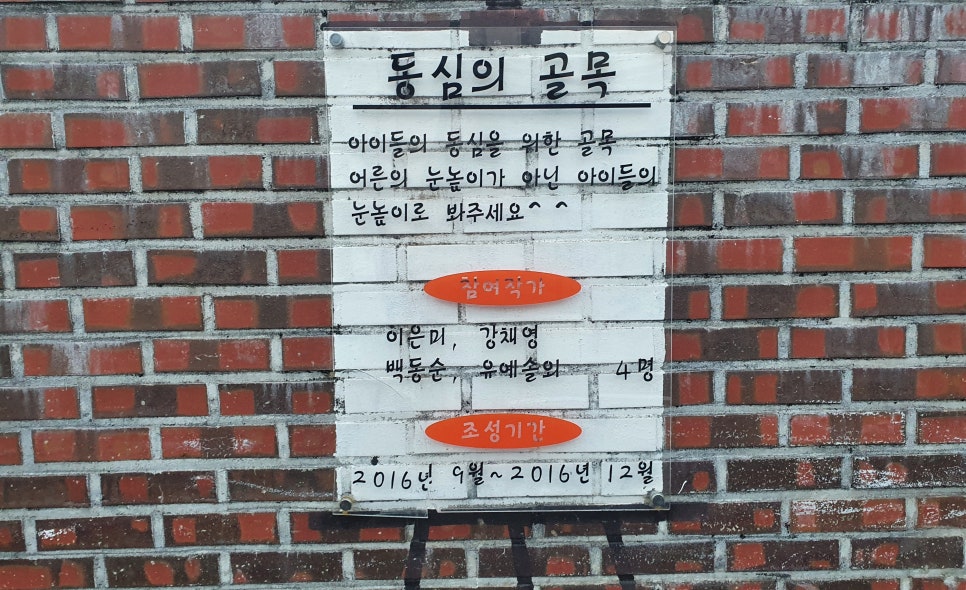 동심의 골목
아이들의 동심을 위한 골목
어른의 눈높이가 아닌 아이들의
눈높이로 봐주세요^^
참여작가
이은미, 강채영
백동순, 유예솔외 4명
조성기간
2016년 9월~2016년 12월